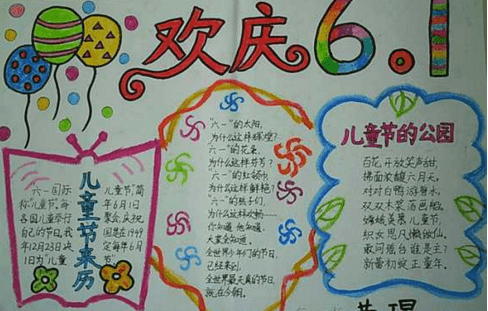 欢庆6.1
儿童节来历
六一国际
称"儿童节",每
各国儿童举行
自己的节日。我
年12月23日决
1日为"儿童
儿童节简
年6月1日
聚会,庆祝
国是在1949
定每年6月
节。
"六一"的太阳,
为什么这样辉煌?
"六一"的花朵,
为什么这样芬芳?
"六一"的红领巾
为什么这样鲜艳?
"六一"的孩子们,
为什么这样欢畅……
你知道 他知道,
大家全知道,
全世界少年们的节日,
已经来到,
全世界最天真的节日,
就在今朝。
儿童节的公园
百花开放笑声甜,
拂面浓馥六月天。
对对白鸭游碧水,
双双木桨荡画船。
嫦娥羡慕儿童节,
织女思凡懒做仙。
敢问瑶台谁是主?
新蕾初绽正童年。